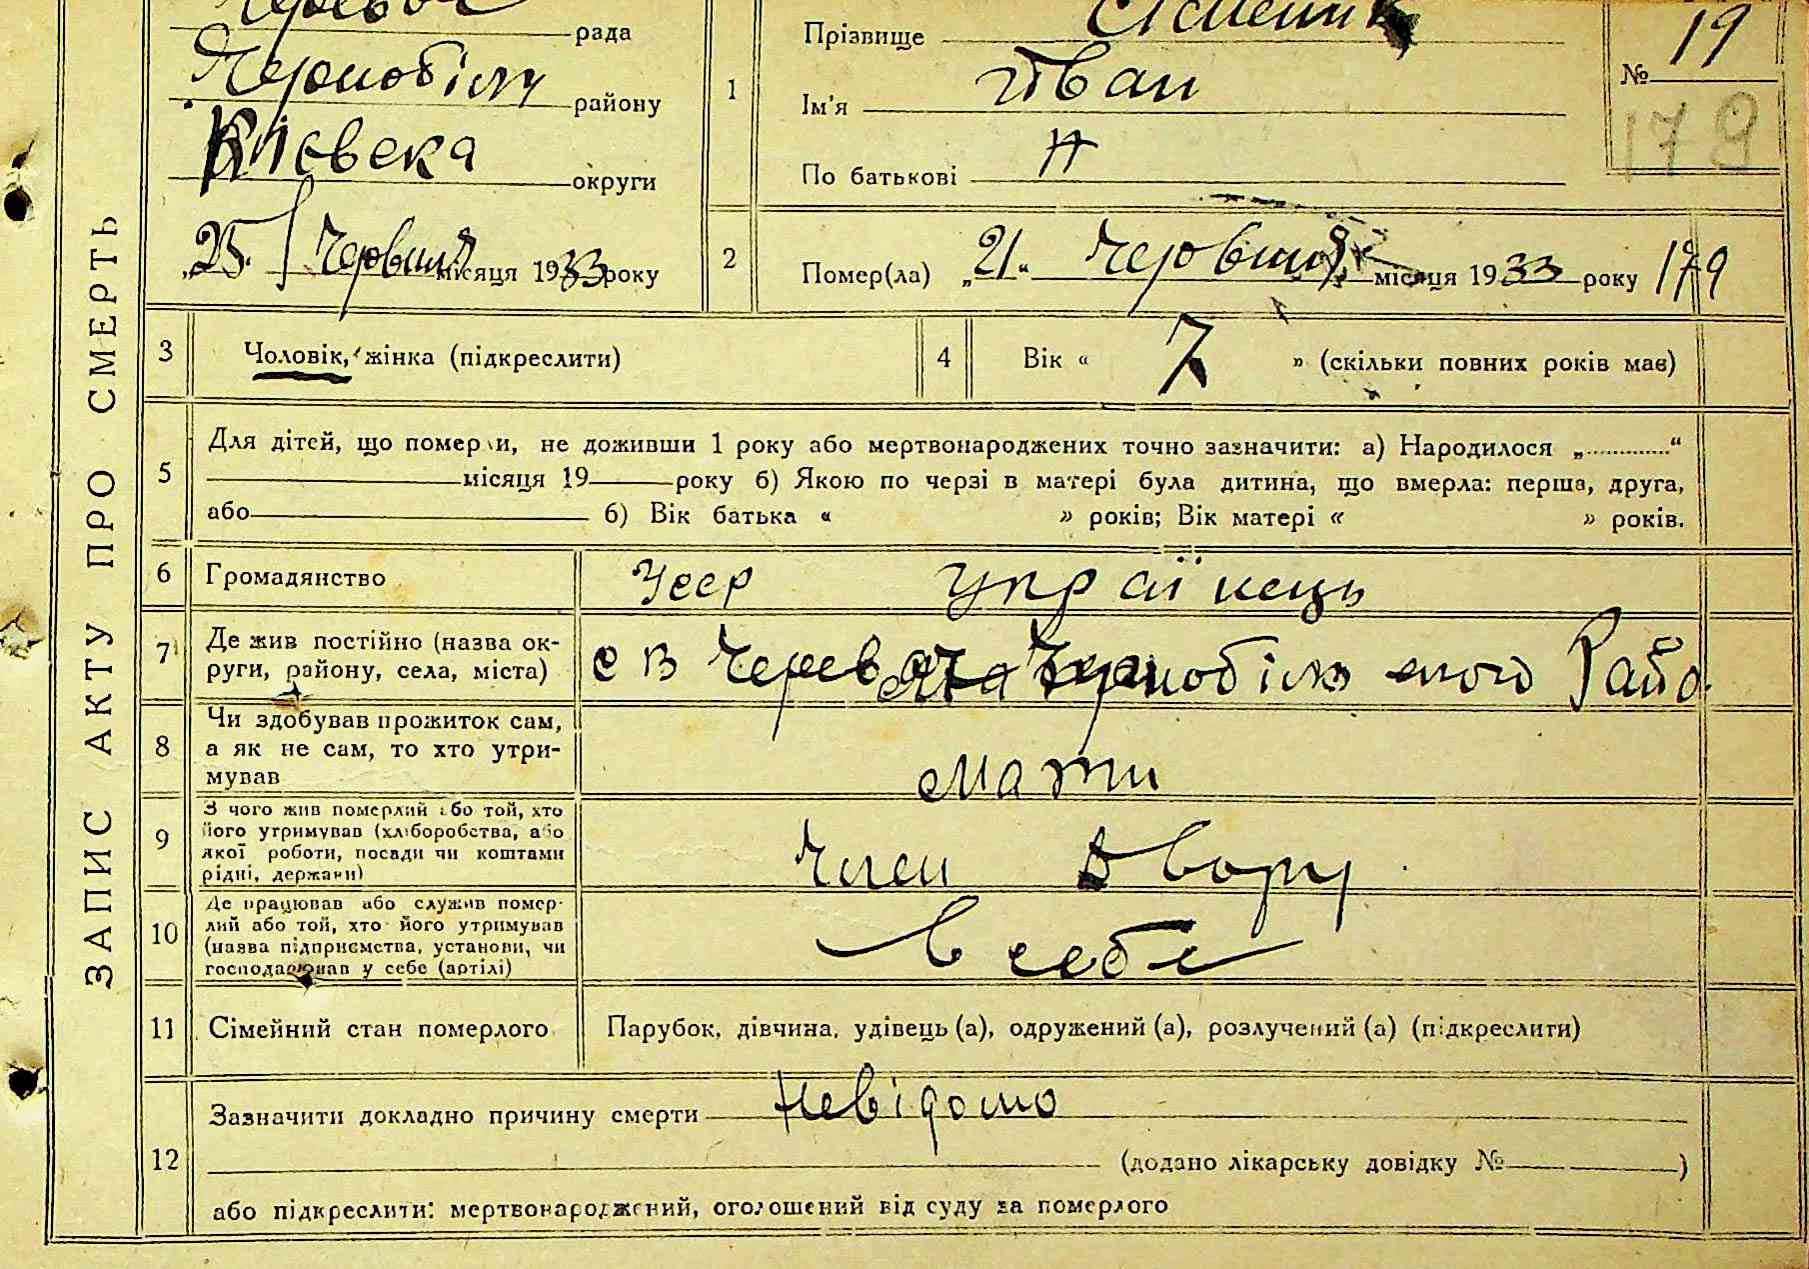 рада
Прізвище
№ 19
Чорнобіль району
1
Ім'я Іван
179
Кієвска округи
По батькові Н
ЗАПИС АКТУ ПРО СМЕРТЬ
„25. Червня місяця 1933 року
2
Помер(ла) „21“ Червня місяця 1933 року 179
3 Чоловік, жінка (підкреслити)
4 Вік « 7 » (скільки повних років має)
5
Для дітей, що померли, не доживши 1 року або мертвонароджених точно зазначити: а) Народилося „.............“
місяця 19 року б) Якою по черзі в матері була дитина, що вмерла: перша, друга,
або б) Вік батька « » років; Вік матері « » років.
6 Громадянство Усср Украінець
7 Де жив постійно (назва ок-
руги, району, села, міста)
с в Черевач Чорнобіль ского Райо.
8 Чи здобував прожиток сам,
а як не сам, то хто утри-
мував
Мати
9 З чого жив померлий або той, хто
його утримував (хліборобства, або
якої роботи, посади чи коштами
рідні, держави)
Член Двору
10 Де працював або служив помер-
лий або той, хто його утримував
(назва підприємства, установи, чи
господарював у себе (артілі)
В себе
11 Сімейний стан померлого Парубок, дівчина, удівець (а), одружений (а), розлучений (а) (підкреслити)
12
Зазначити докладно причину смерти Невідомо
(додано лікарську довідку № )
або підкреслити: мертвонароджений, оголошений від суду за померлого